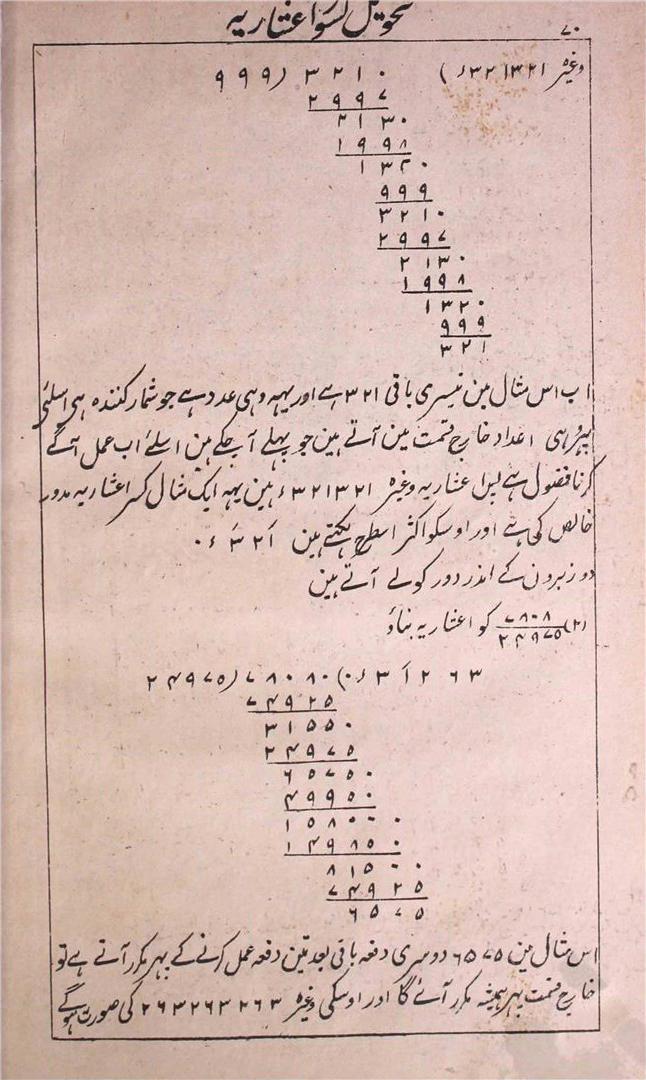 تحویل کسور اعشاریہ
۷۰
۹۹۹) ۳۲۱۰ (۳۲۱۳۲۱ء وغیرہ
۲۹۹۷
۲۱۳۰
۱۹۹۸
۱۳۲۰
۹۹۹
۳۲۱۰
۲۹۹۷
۲۱۳۰
۱۹۹۸
۱۳۲۰
۹۹۹
۳۲۱
اب اس مثال مین تیسری باقی ۳۲۱ ہے اور یہہ وہی عدد ہے جو شمار کنندہ ہی اسلئے
پہر وہی اعداد خارج قسمت مین آتے ہین جو پہلے آچکے ہین اسلئے اب عمل آگے
کرنا فضول ہے پس اعشاریہ وغیرہ ۳۲۱۳۲۱ء ہین یہہ ایک مثال کسر اعشاریہ مدور
خالص کی ہے اور اوسکو اکثر اسطرح لکہتے ہین ۳َ۲اَء۰
دو زبرون کے اندر دور کولے آتے ہین
(۲) ۷۸۰۸/۲۴۹۷۵ کو اعشاریہ بناؤ
۲۴۹۷۵) ۷۸۰۸۰ (۰ء۳اَ۲۶۳
۷۴۹۲۵
۳۱۵۵۰
۲۴۹۷۵
۶۵۷۵۰
۴۹۹۵۰
۱۵۸۰۰۰
۱۴۹۸۵۰
۸۱۵۰۰
۷۴۹۲۵
۶۵۷۵
اس مثال مین ۶۵۷۵ دوسری دفعہ باقی بعد تین دفعہ عمل کرنے کے پہر مکرر آتے ہے تو
خارج قسمت پہر ہمیشہ مکرر آئے گا اور اوسکی وغیرہ ۲۶۳۲۶۳۲۶۳ کی صورت ہوگے